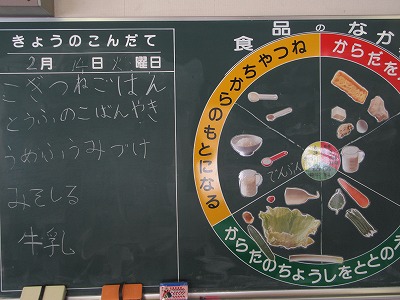 きょうのこんだて
2月 14日 火曜日
こぎつねごはん
とうふのこばんやき
うめふうみづけ
みそしる
牛乳
食品のなか
ちからやねつ
のもとになる
からだを
でんぷん
からだのちょうしをととのえ